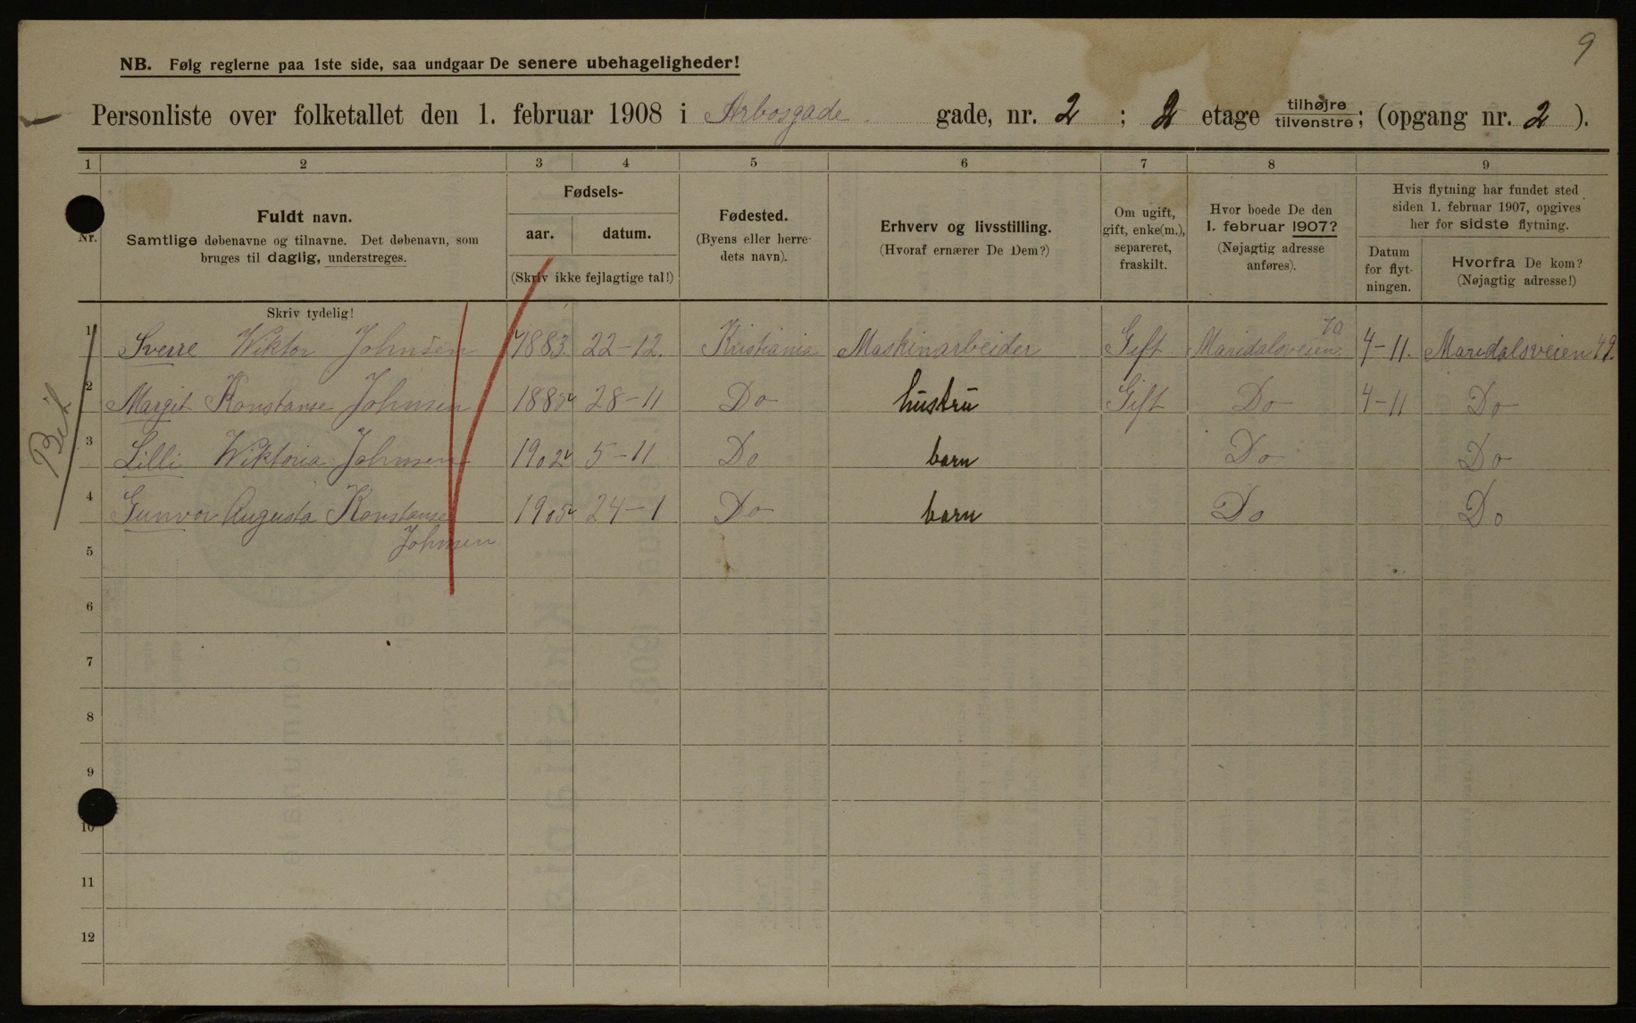 9
NB. Følg reglerne paa 1ste side, saa undgaar De senere ubehageligheder!
Personliste over folketallet den 1. februar 1908 i Arbosgade gade, nr. 2 ; 2 etage tilhøjre tilvenstre ; (opgang nr. 2 ).
1 2 3 4 5 6 7 8 9
Nr.
Fuldt navn.
Samtlige døbenavne og tilnavne. Det døbenavn, som
bruges til daglig, understreges.
Fødsels-
aar. datum.
(Skriv ikke fejlagtige tal!)
Fødested.
(Byens eller herre-
dets navn).
Erhverv og livsstilling.
(Hvoraf ernærer De Dem?)
Om ugift,
gift, enke(m.),
separeret,
fraskilt.
Hvor boede De den
1. februar 1907?
(Nøjagtig adresse
anføres).
Hvis flytning har fundet sted
siden 1. februar 1907, opgives
her for sidste flytning.
Datum
for flyt-
ningen.
Hvorfra De kom?
(Nøjagtig adresse!)
Skriv tydelig!
1 Sverre Wiktor Johnsen 1883 22-12. Kristiania Maskinarbeider Gift Maridalsveien 4-11. Maridalsveien 49.
2 Margit Konstanse Johnsen 28-11 Do hustru Gift Do 4-11 Do
3 Lilli Wiktoria Johnsen 1902 5-11 Do barn Do Do
4 Gunvor Augusta Konstanse 1905 24-1 Do barn Do Do
Johnsen
5
6
7
8
9
10
11
12